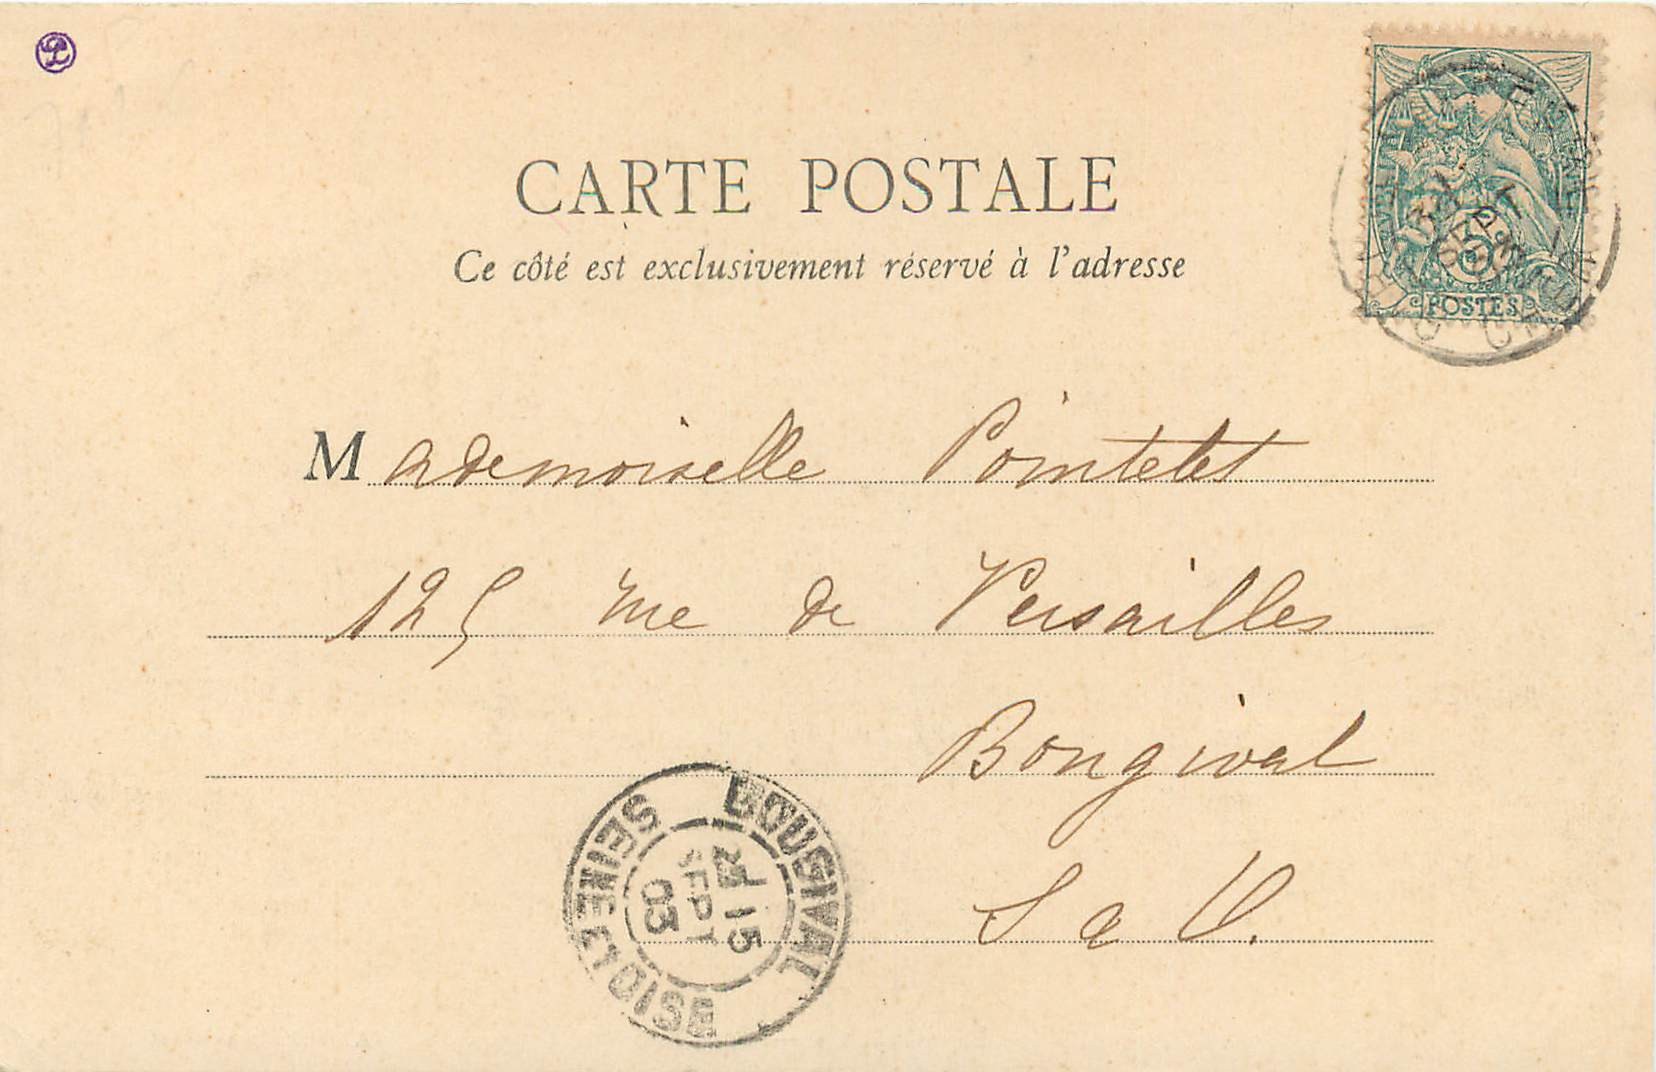 CARTE POSTALE
Ce côté est exclusivement réservé à l'adresse
POSTES
5
Mademoiselle Pointelet
125 rue de Versailles
Bougival
S & O.
BOUGIVAL
15
SEPT
03
SEINE-ET-OISE